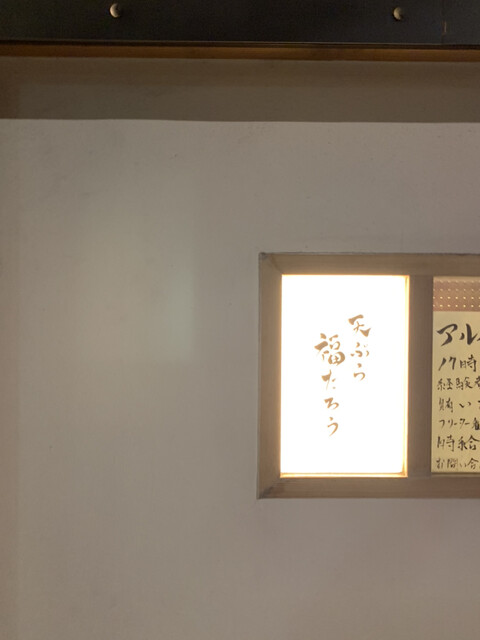 天ぷら
福たろう
アル
17時
経験者
賄い
フリーター
時
お問い合